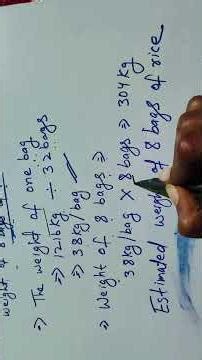 ⇒ The weight of one bag
⇒ 1216kg ÷ 32 bags
⇒ 38kg/bag
⇒ Weight of 8 bags ⇒
38kg/bag X 8 bags ⇒ 304kg
Estimated weight of 8 bags of rice